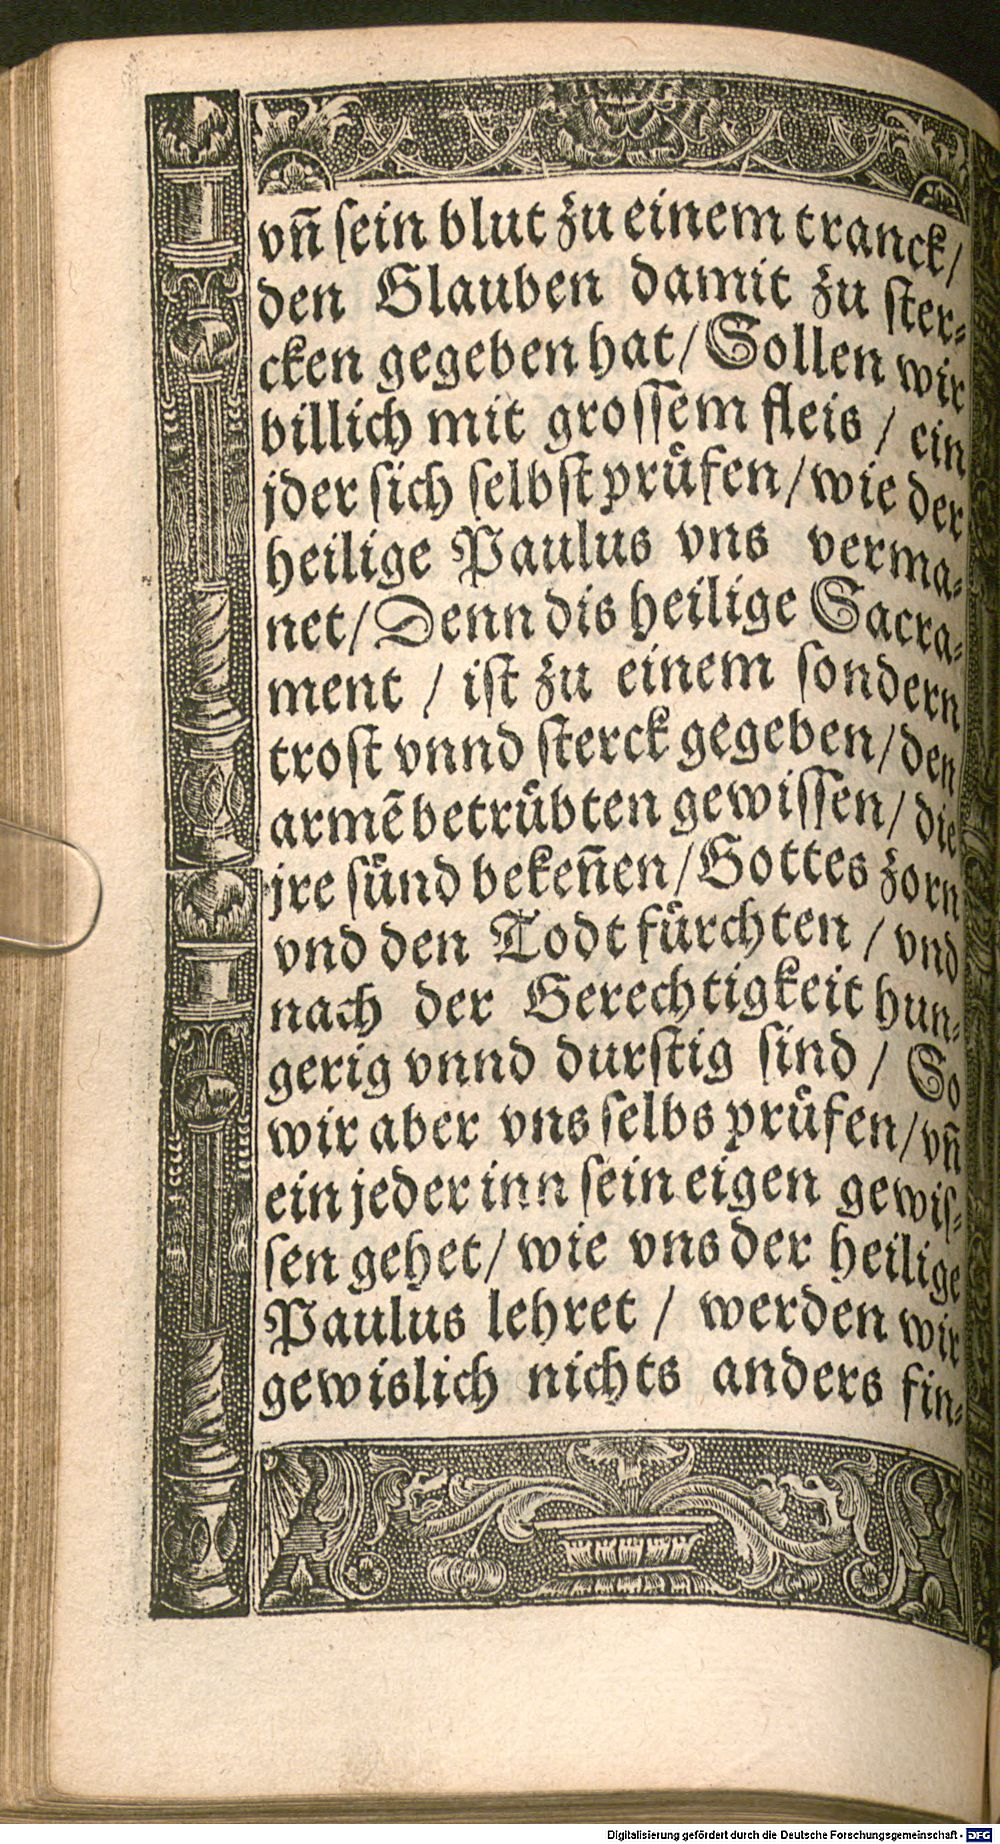 vñ ſein blut zu einem tranck/
den Glauben damit zu ſter⸗
cken gegeben hat/ Sollen wir
billich mit groſſem fleis / ein
jder ſich ſelbſt pruͤfen/ wie der
heilige Paulus vns verma⸗
net/ Denn dis heilige Sacra⸗
ment / iſt zu einem ſondern
troſt vnnd ſterck gegeben/ den
armẽ betruͤbten gewiſſen/ die
jre ſuͤnd bekeñen/ Gottes zorn
vnd den Todt fuͤrchten / vnd
nach der Gerechtigkeit hun⸗
gerig vnnd durſtig ſind / So
wir aber vns ſelbs pruͤfen/ vñ
ein jeder inn ſein eigen gewiſ⸗
ſen gehet/ wie vns der heilige
Paulus lehret / werden wir
gewislich nichts anders fin⸗
Digitalisierung gefördert durch die Deutsche Forschungsgemeinschaft - DFG